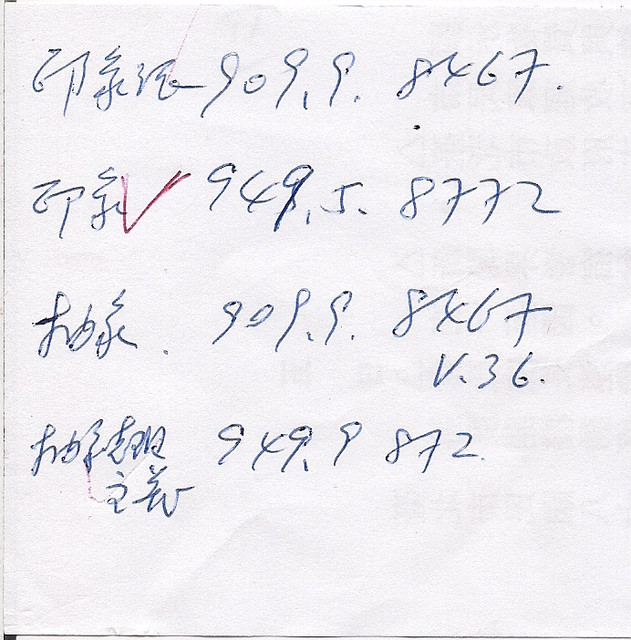 印象派 909.9. 8467.
印象 949.5. 8772
抽象. 909.9. 8467
V.36.
抽象超現 949.9 872.
主義